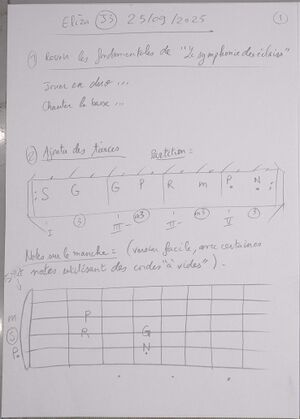 Eliza (JS) 25/09/2025 ①
① Revoir les fondamentales de "la symphonie des éclairs"
Jouer en duo ...
Chanter la basse ...
② Ajouter des tierces Partition =
S G G P R m P. N.
I ③ III- (m3) II- (m3) V ③
Notes sur le manche = (version facile, avec certaines
notes utilisant des cordes "à vides").
m P
S R G
P. N